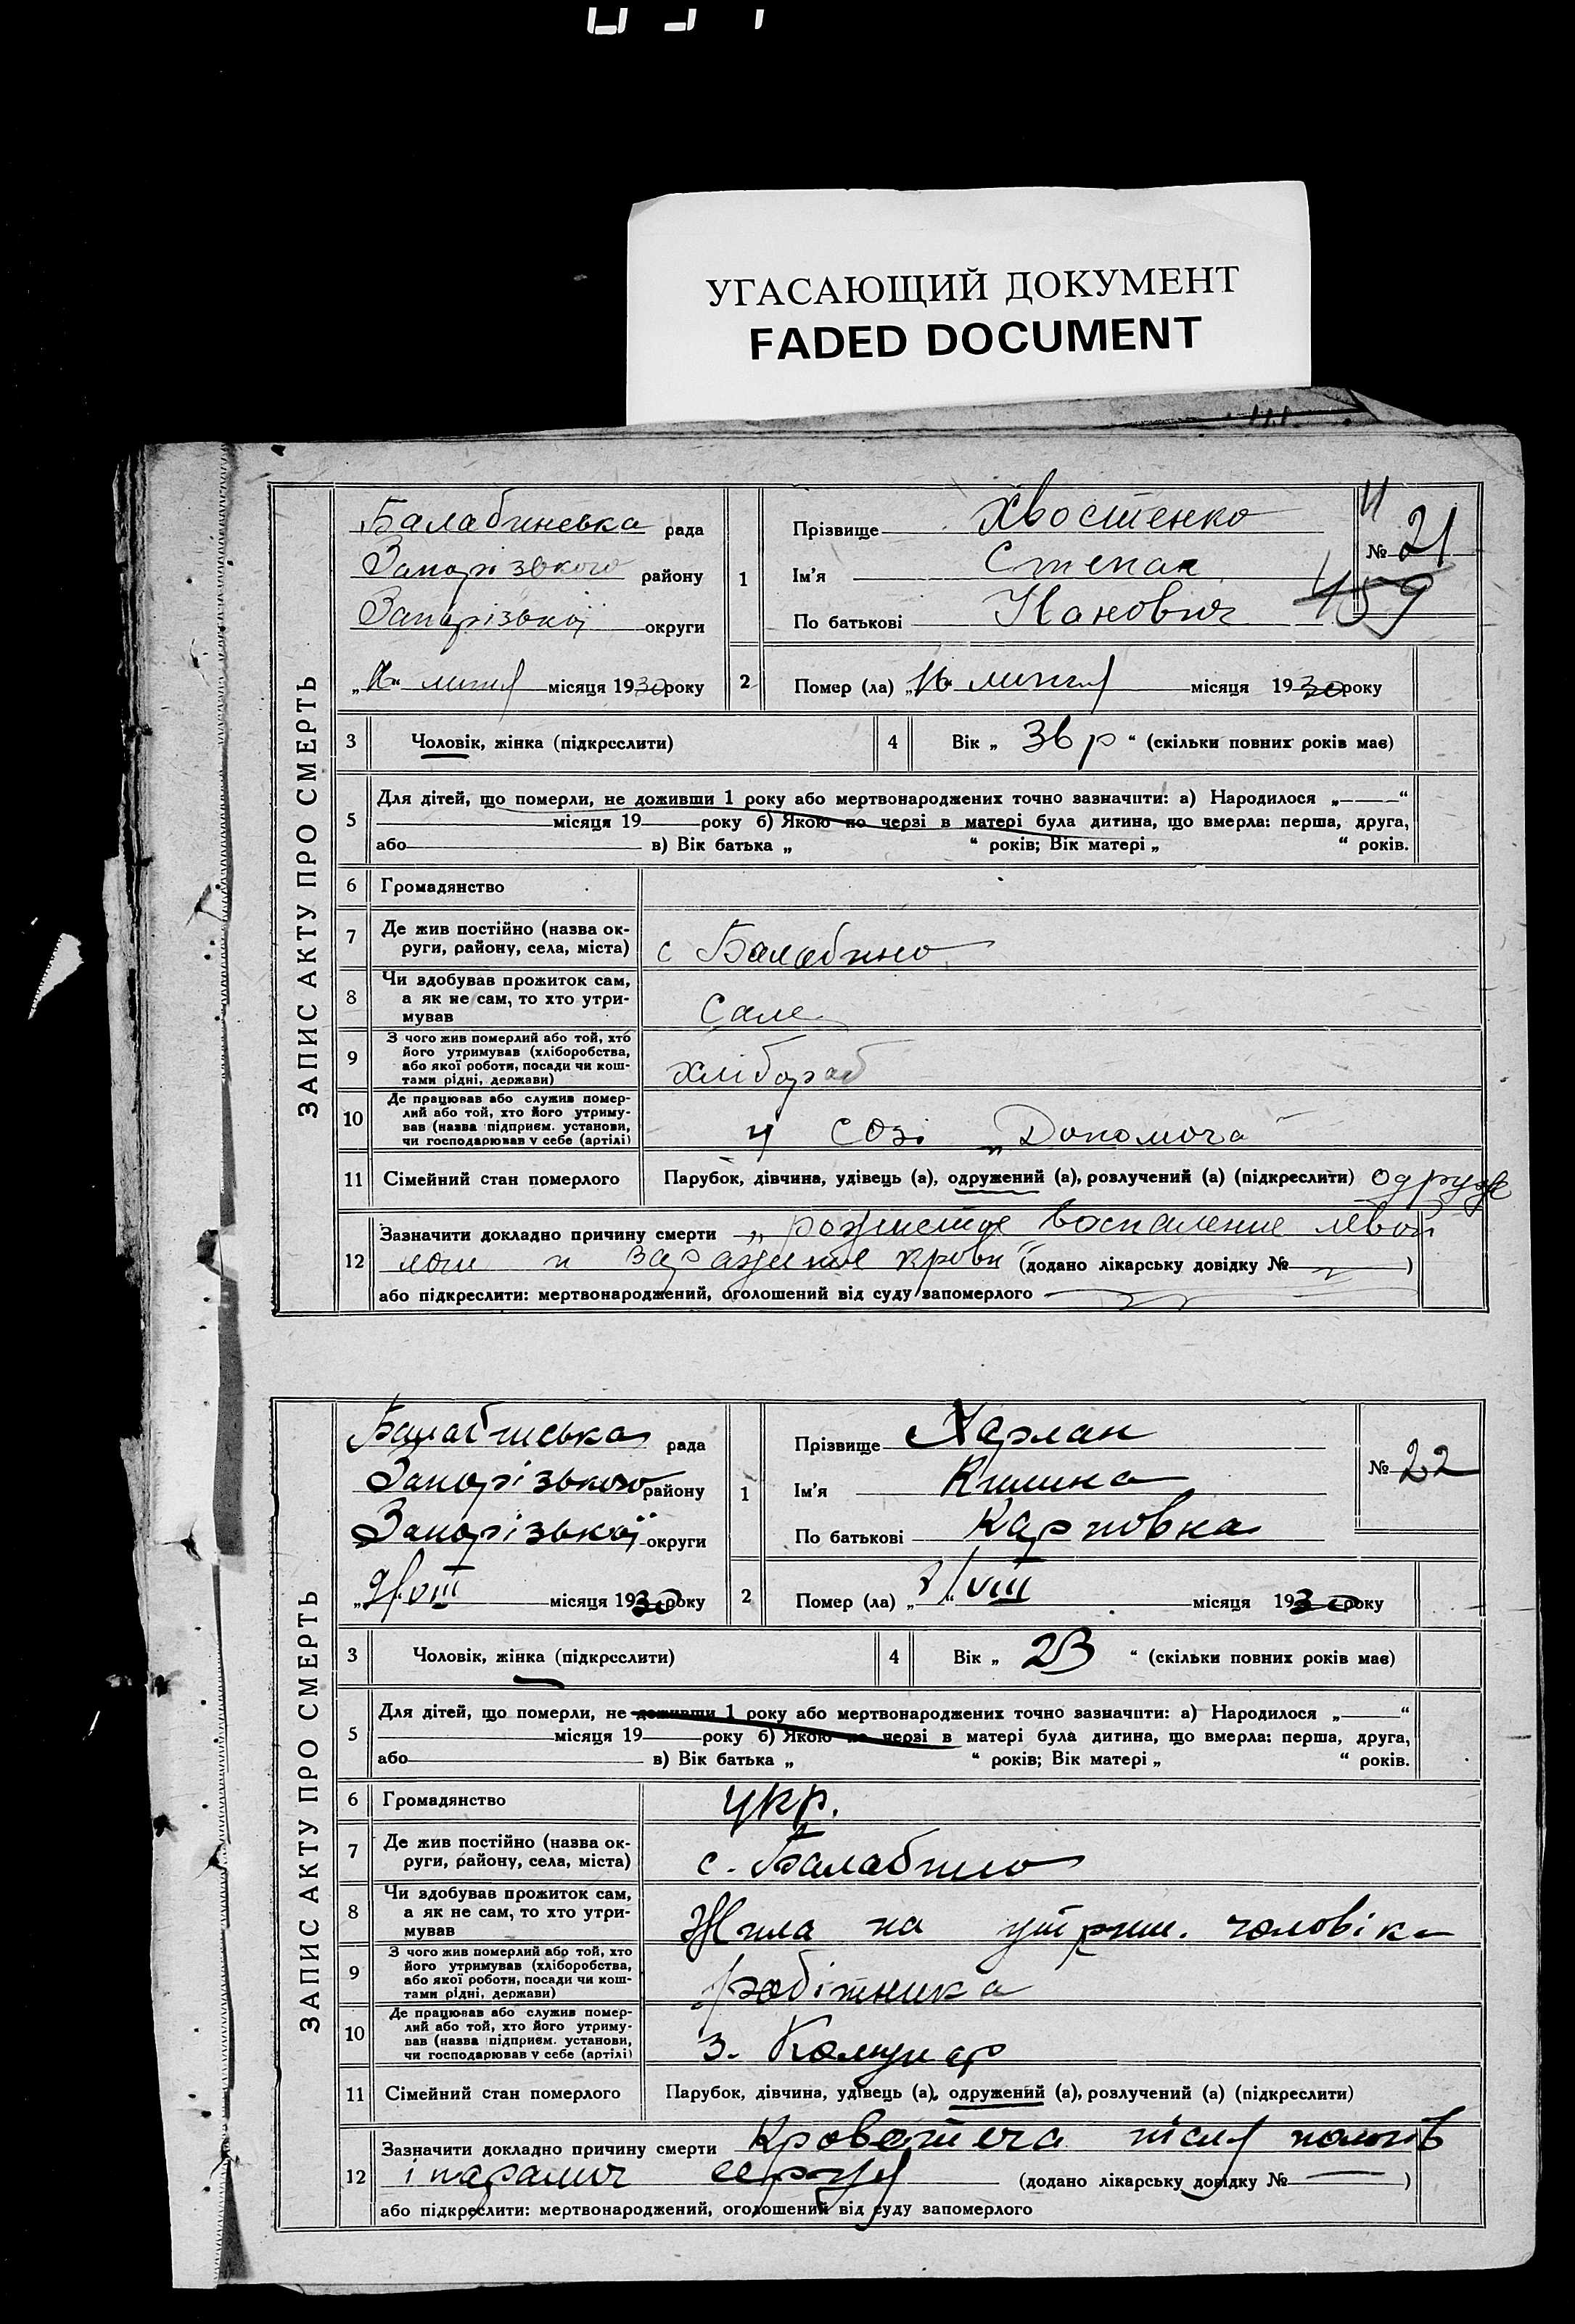 УГАСАЮЩИЙ ДОКУМЕНТ
FADED DOCUMENT
ЗАПИС АКТУ ПРО СМЕРТЬ
Балабинська рада
Запорізького району
Запорізької округи
місяця 1930 року
1
Прізвище Хвостенко
Ім'я Степан
По батькові
№ 21
159
2
Помер (ла) „16“ липня місяця 1930 року
3 Чоловік, жінка (підкреслити)
4 Вік „ 36 р “ (скільки повних років має)
5 Для дітей, що померли, не доживши 1 року або мертвонароджених точно зазначити: а) Народилося „ “
місяця 19 року б) Якою по черзі в матері була дитина, що вмерла: перша, друга,
або в) Вік батька „ “ років; Вік матері „ “ років.
6 Громадянство
7 Де жив постійно (назва ок-
руги, району, села, міста) с Балабино
8 Чи здобував прожиток сам,
а як не сам, то хто утри-
мував Сам
9 З чого жив померлий або той, хто
його утримував (хліборобства,
або якої роботи, посади чи кош-
тами рідні, держави) хлібороб
10 Де працював або служив помер-
лий або той, хто його утриму-
вав (назва підприєм. установи,
чи господарював у себе (артілі) у СОЗі „Допомога“
11 Сімейний стан померлого Парубок, дівчина, удівець (а), одружений (а), розлучений (а) (підкреслити) одруж
12 Зазначити докладно причину смерти „рожистое воспаление левой
и заражение крови“ (додано лікарську довідку № )
або підкреслити: мертвонароджений, оголошений від суду запомерлого
ЗАПИС АКТУ ПРО СМЕРТЬ
Балабинська рада
Запорізького району
Запорізької округи
„9/VIII місяця 1930 року
1
Прізвище Харлан
Ім'я Килина
По батькові Карповна
№ 22
2
Помер (ла) „ “ VIII місяця 1930 року
3 Чоловік, жінка (підкреслити)
4 Вік „ 23 “ (скільки повних років має)
5 Для дітей, що померли, не доживши 1 року або мертвонароджених точно зазначити: а) Народилося „ “
місяця 19 року б) Якою по черзі в матері була дитина, що вмерла: перша, друга,
або в) Вік батька „ “ років; Вік матері „ “ років.
6 Громадянство укр.
7 Де жив постійно (назва ок-
руги, району, села, міста) с. Балабино
8 Чи здобував прожиток сам,
а як не сам, то хто утри-
мував Жила на утрим. чоловіка
9 З чого жив померлий або той, хто
його утримував (хліборобства,
або якої роботи, посади чи кош-
тами рідні, держави) робітника
10 Де працював або служив помер-
лий або той, хто його утриму-
вав (назва підприєм. установи,
чи господарював у себе (артілі) з. Комунар
11 Сімейний стан померлого Парубок, дівчина, удівець (а), одружений (а), розлучений (а) (підкреслити)
12 Зазначити докладно причину смерти Кровотеча після пологів
і параліч серця (додано лікарську довідку № )
або підкреслити: мертвонароджений, оголошений від суду запомерлого